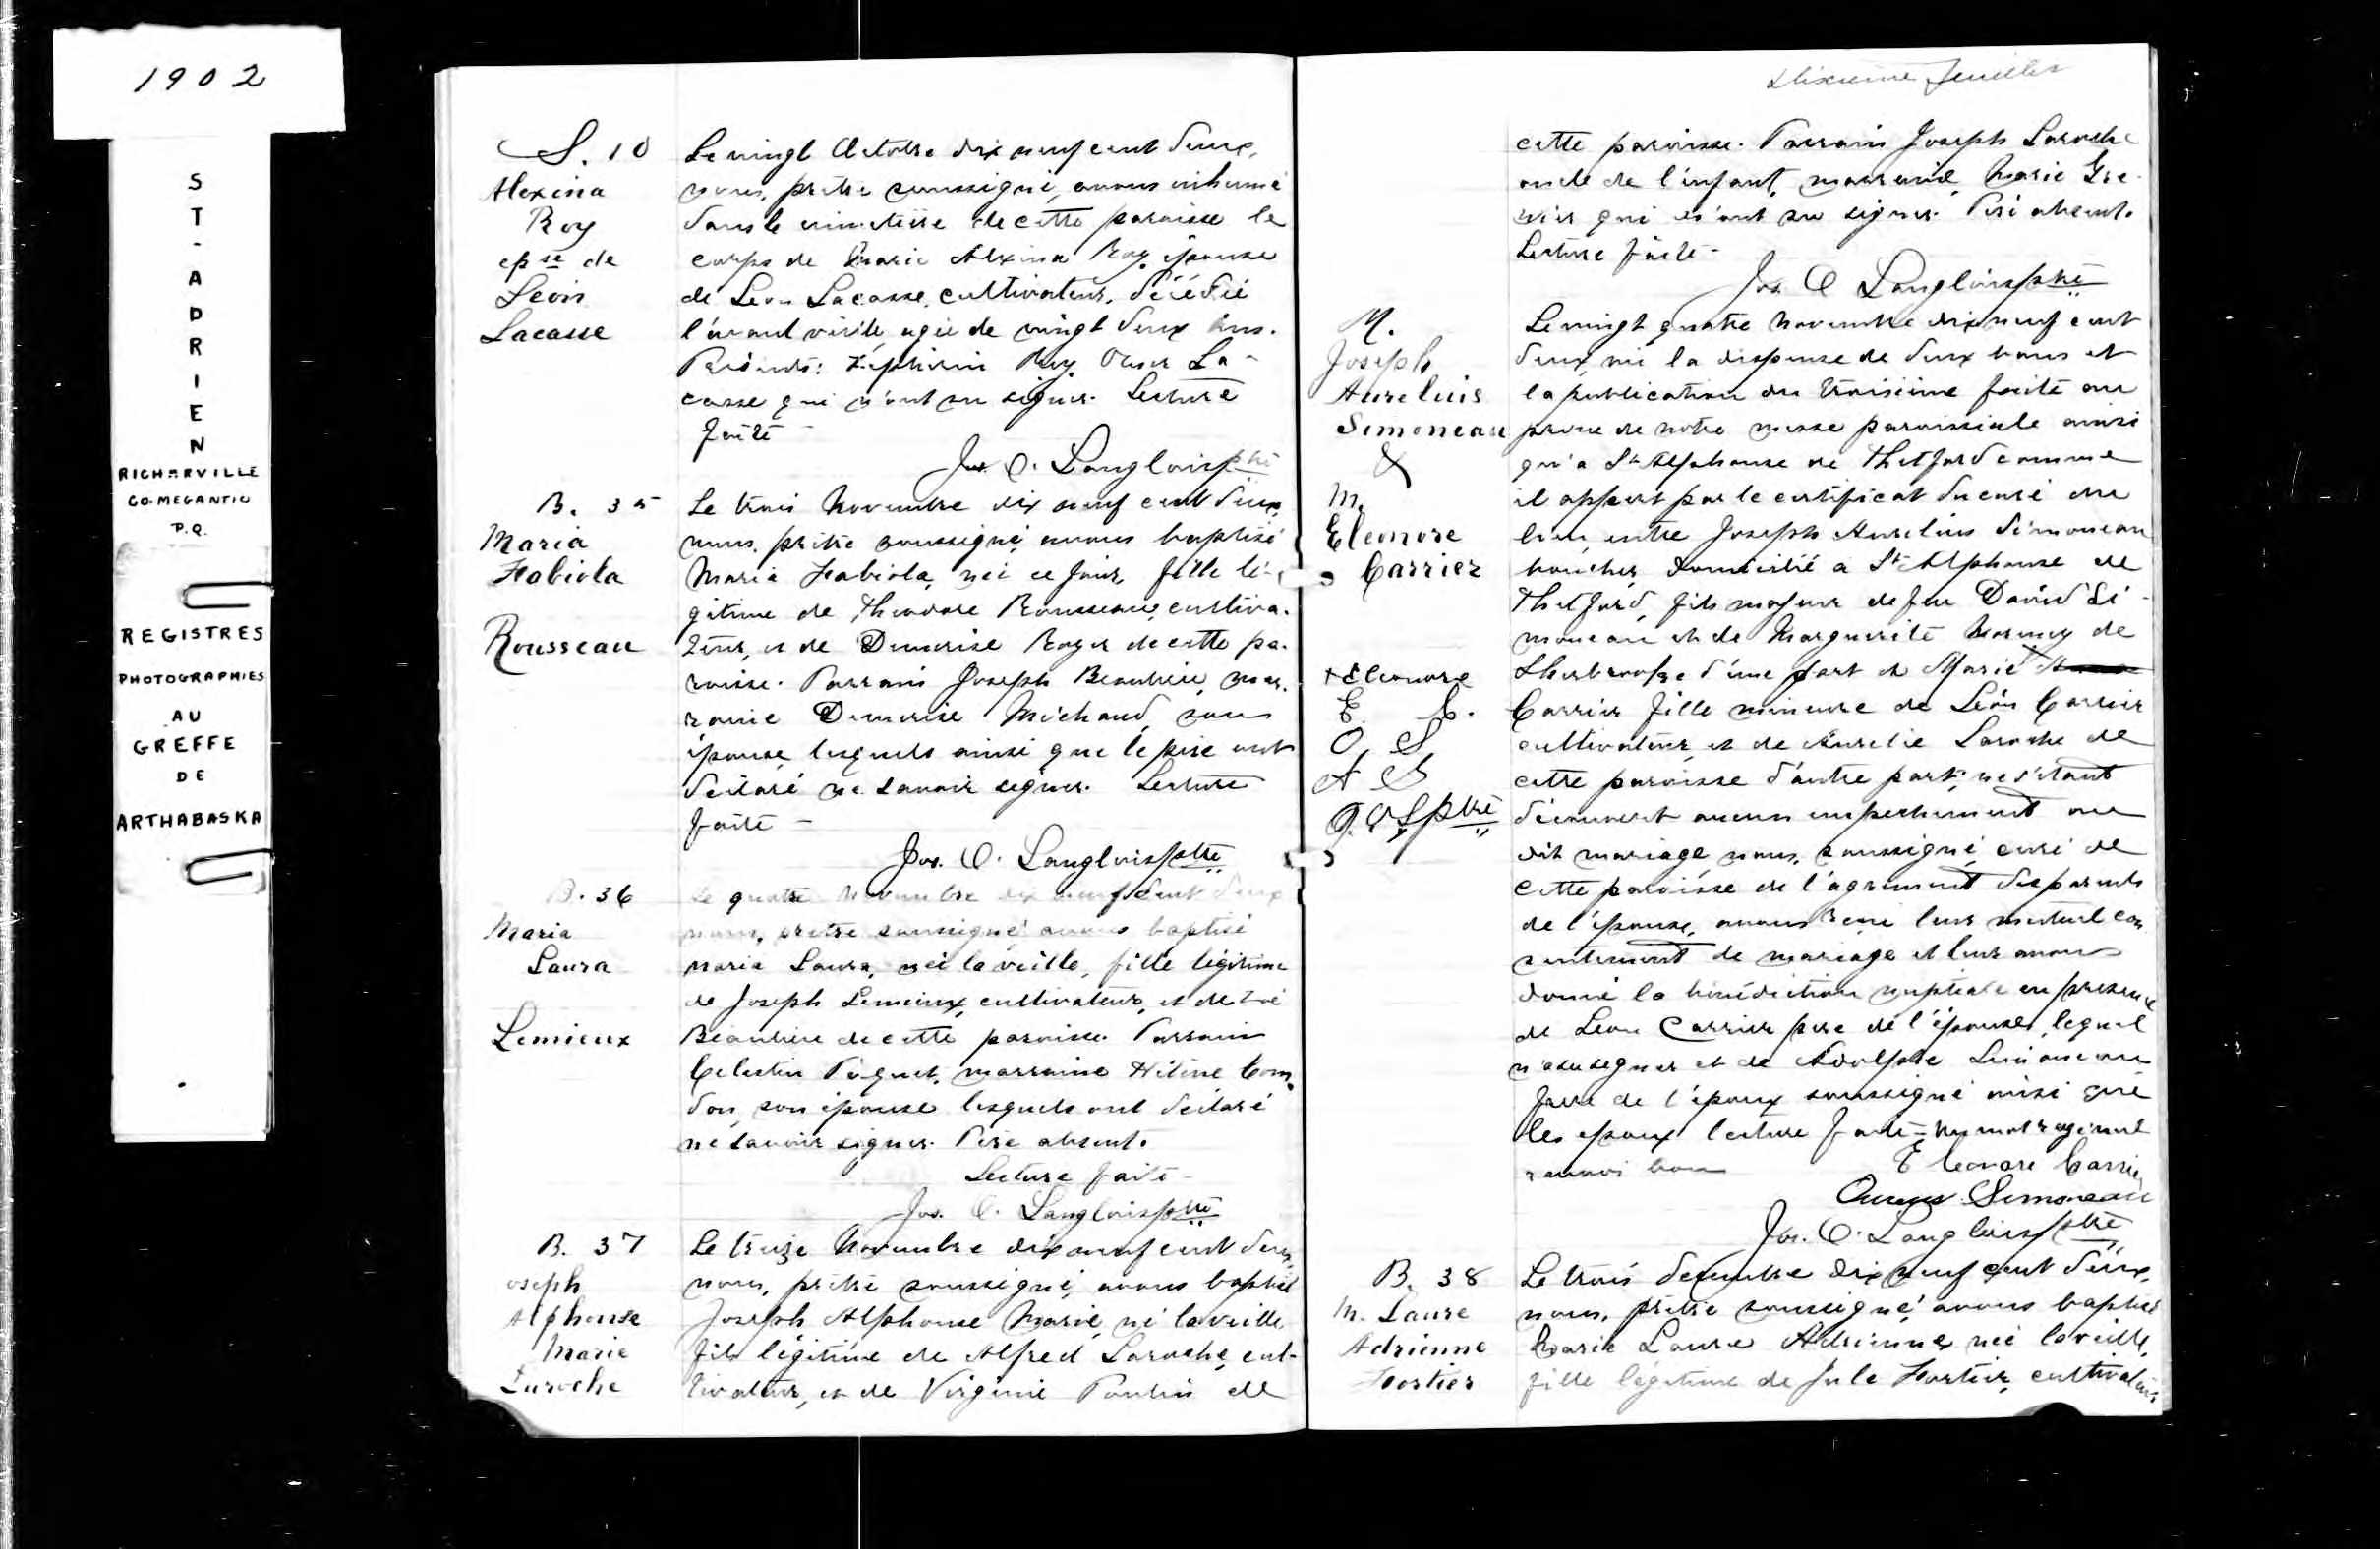 1902
S
T
-
A
D
R
I
E
N
RICHARVILLE
CO. MEGANTIC
P.Q.
REGISTRES
PHOTOGRAPHIES
AU
GREFFE
DE
ARTHABASKA
S. 10
Alexina
Roy
epse de
Léon
Lacasse
Le vingt Octobre dix neuf cent deux,
nous, prêtre soussigné, avons inhumé
dans le cimetière de cette paroisse le
corps de Marie Alexina Roy, épouse
de Léon Lacasse, cultivateur, décédée
l'avant veille, agée de vingt deux ans.
Présents: Zephirin Roy, Omer La-
casse qui n'ont su signer. Lecture
faite -
Jos. O. Langlois ptre
B. 35
Maria
Fabiola
Rousseau
Le trois Novembre dix neuf cent deux,
nous, prêtre soussigné, avons baptisé
Maria Fabiola, née ce jour, fille lé-
gitime de Theodore Rousseau, cultiva-
teur, et de Demerise Roger de cette pa-
roisse. Parrain Joseph Beaulieu, mar-
raine Demerise Michaud, son
épouse, lesquels ainsi que le père ont
déclaré ne savoir signer. Lecture
faite -
Jos. O. Langlois ptre
B. 36
Maria
Laura
Lemieux
Le quatre Novembre dix neuf cent deux
nous, prêtre soussigné avons baptisé
Maria Laura, née la veille, fille légitime
de Joseph Lemieux, cultivateur, et de
Beaulieu de cette paroisse. Parrain
Celestin Paquet, marraine Hélène
don, son épouse lesquels ont déclaré
ne savoir signer. Père absent.
Lecture faite -
Jos. O. Langlois ptre
B. 37
oseph
Alphonse
Marie
Laroche
Le treize Novembre dix neuf cent deux,
nous, prêtre soussigné, avons baptisé
Joseph Alphonse Marie, né la veille
fils légitime de Alfred Laroche, cul-
tivateur, et de Virginie Poulin de
Dixième feuillet
cette paroisse. Parrain Joseph Laroche
oncle de l'enfant, marraine, Marie Gre-
nier qui n'ont su signer. Père absent.
Lecture faite -
Jos. O Langlois ptre
M.
Joseph
Aurelius
Simoneau
&
M.
Eleonore
Carrier
Le vingt quatre Novembre dix neuf cent
deux, vu la dispense de deux bans et
la publication du troisième faite au
prone de notre messe paroissiale ainsi
qu'a St Alphonse de Thetford comme
il appert par le certificat du curé du
lieu, entre Joseph Aurelius Simoneau
boucher, domicilié a St Alphonse de
Thetford, fils majeur de feu David Si-
moneau et de Marguerite de
Sherbrooke d'une part et Marie
+ Eleonore
E. C.
O. S
A S
J. O. L ptre
Carrier fille mineure de Léon Carrier
cultivateur, et de Aurelie Laroche de
cette paroisse d'autre part; ne s'étant
découvert aucun empechement au
dit mariage, nous, soussigné, curé de
cette paroisse de l'agrement des parents
de l'épouse, avons reçu leur mutuel con
sentement de mariage et leur avons
donné la bénédiction nuptiale en présence
de Léon Carrier père de l'épouse, lequel
n'a su signer et de Adolphe Simoneau
frère de l'époux soussigné ainsi que
les époux lecture faite - un mot rayé nul
renvoi bon
Eleonore Carrier
Simoneau
Jos. O. Langlois ptre
B. 38
M. Laure
Adrienne
Fortier
Le trois decembre dix neuf cent deux,
nous, prêtre soussigné, avons baptisé
Marie Laure Adrienne, née la veille,
fille légitime de Jule Fortier, cultivateur,